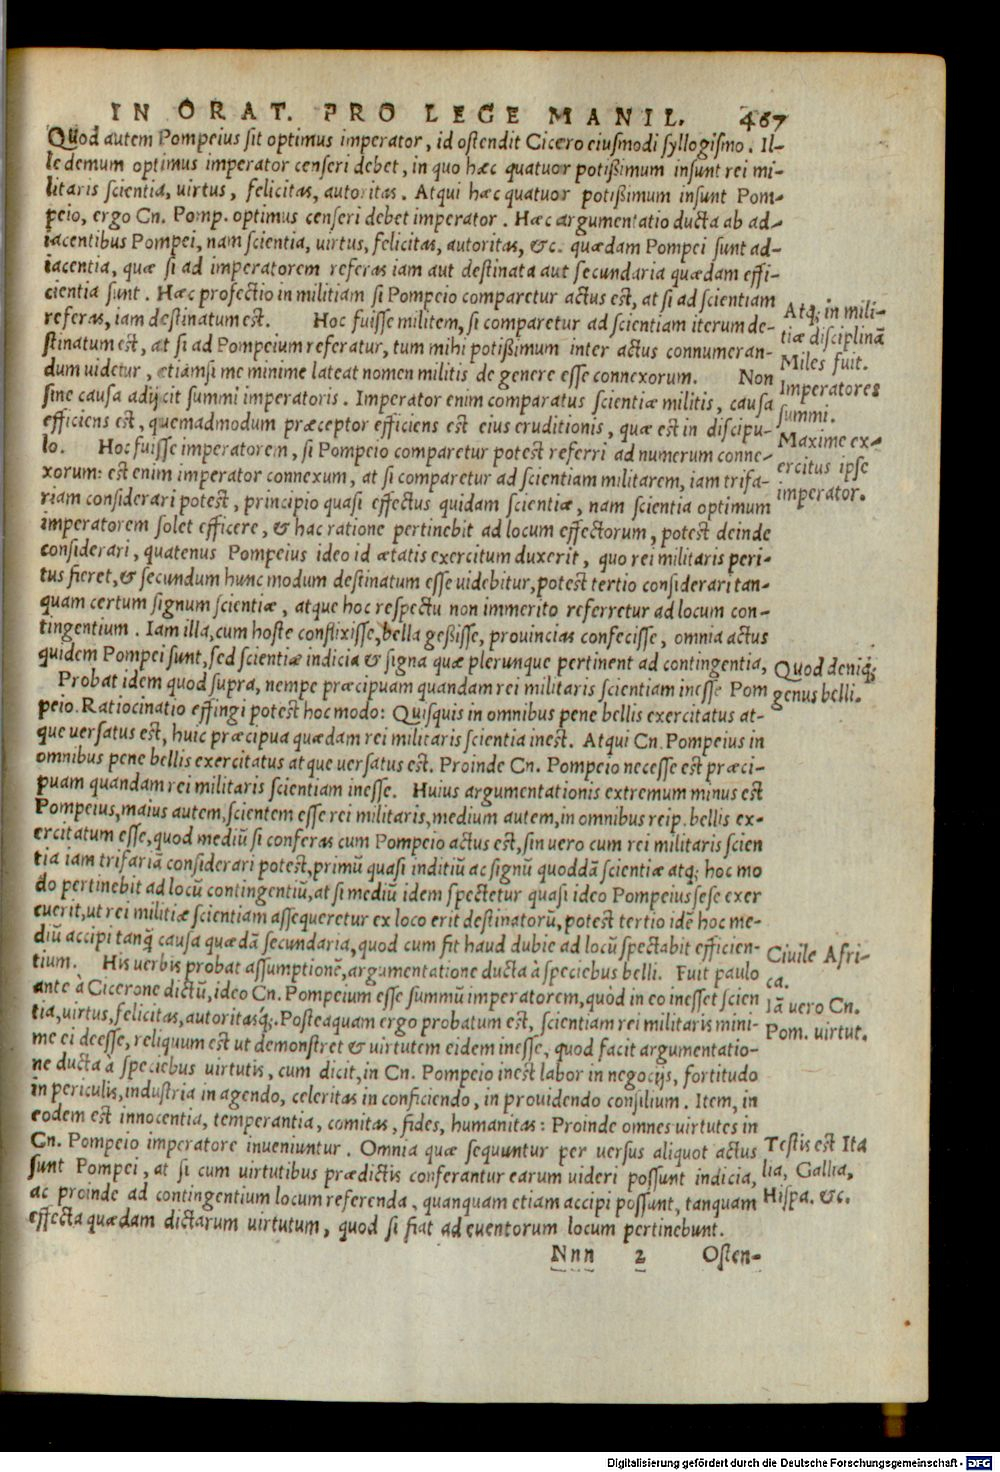 IN ORAT. PRO LEGE MANIL. 467
Quod autem Pompeius sit optimus imperator, id ostendit Cicero eiusmodi syllogismo. Il-
le demum optimus imperator censeri debet, in quo hæc quatuor potißimum insunt rei mi-
litaris scientia, uirtus, felicitas, autoritas. Atqui hæc quatuor potißimum insunt Pom-
peio, ergo Cn. Pomp. optimus censeri debet imperator. Hæc argumentatio ducta ab ad-
iacentibus Pompei, nam scientia, uirtus, felicitas, autoritas, &c. quædam Pompei sunt ad-
iacentia, quæ si ad imperatorem referas iam aut destinata aut secundaria quædam effi-
cientia sunt. Hæc profectio in militiam si Pompeio comparetur actus est, at si ad scientiam
referas, iam destinatum est. Hoc fuisse militem, si comparetur ad scientiam iterum de-
stinatum est, at si ad Pompeium referatur, tum mihi potißimum inter actus connumeran-
dum uidetur, etiamsi me minime lateat nomen militis de genere esse connexorum. Non
sine causa adijcit summi imperatoris. Imperator enim comparatus scientiæ militis, causa
efficiens est, quemadmodum præceptor efficiens est eius eruditionis, quæ est in discipu-
lo. Hoc fuisse imperatorem, si Pompeio comparetur potest referri ad numerum conne-
xorum: est enim imperator connexum, at si comparetur ad scientiam militarem, iam trifa-
riam considerari potest, principio quasi effectus quidam scientiæ, nam scientia optimum
imperatorem solet efficere, & hac ratione pertinebit ad locum effectorum, potest deinde
considerari, quatenus Pompeius ideo id ætatis exercitum duxerit, quo rei militaris peri-
tus fieret, & secundum hunc modum destinatum esse uidebitur, potest tertio considerari tan-
quam certum signum scientiæ, atque hoc respectu non immerito referretur ad locum con-
tingentium. Iam illa, cum hoste conflixisse, bella geßisse, prouincias confecisse, omnia actus
quidem Pompei sunt, sed scientiæ indicia & signa quæ plerunque pertinent ad contingentia,
Probat idem quod supra, nempe præcipuam quandam rei militaris scientiam inesse Pom
peio. Ratiocinatio effingi potest hoc modo: Quisquis in omnibus pene bellis exercitatus at-
que uersatus est, huic præcipua quædam rei militaris scientia inest. Atqui Cn. Pompeius in
omnibus pene bellis exercitatus atque uersatus est. Proinde Cn. Pompeio necesse est præci-
puam quandam rei militaris scientiam inesse. Huius argumentationis extremum minus est
Pompeius, maius autem, scientem esse rei militaris, medium autem, in omnibus reip. bellis ex-
ercitatum esse, quod mediũ si conferas cum Pompeio actus est, sin uero cum rei militaris scien
tia iam trifariã considerari potest, primũ quasi inditiũ ac signũ quoddã scientiæ atq; hoc mo
do pertinebit ad locũ contingentiũ, at si mediũ idem spectetur quasi ideo Pompeius sese exer
cuerit, ut rei militiæ scientiam assequeretur ex loco erit destinatorũ, potest tertio idẽ hoc me-
diũ accipi tanq̃ causa quædã secundaria, quod cum fit haud dubie ad locũ spectabit efficien-
tium. His uerbis probat assumptionẽ, argumentatione ducta à speciebus belli. Fuit paulo
ante à Cicerone dictũ, ideo Cn. Pompeium esse summũ imperatorem, quòd in eo inesset scien
tia, uirtus, felicitas, autoritasq́;. Posteaquam ergo probatum est, scientiam rei militaris mini-
me ei deesse, reliquum est ut demonstret & uirtutem eidem inesse, quod facit argumentatio-
ne ducta à speciebus uirtutis, cum dicit, in Cn. Pompeio inest labor in negocijs, fortitudo
in periculis, industria in agendo, celeritas in conficiendo, in prouidendo consilium. Item, in
eodem est innocentia, temperantia, comitas, fides, humanitas: Proinde omnes uirtutes in
Cn. Pompeio imperatore inueniuntur. Omnia quæ sequuntur per uersus aliquot actus
sunt Pompei, at si cum uirtutibus prædictis conferantur earum uideri possunt indicia,
ac proinde ad contingentium locum referenda, quanquam etiam accipi possunt, tanquam
effecta quædam dictarum uirtutum, quod si fiat ad euentorum locum pertinebunt.
Nnn 2 Osten-
Atq; in mili-
tiæ disciplinã
Miles fuit.
Imperatores
summi.
Maxime ex-
ercitus ipse
imperator.
Quod deniq;
genus belli.
Ciuile Afri-
ca.
Iã uero Cn.
Pom. uirtut.
Testis est Ita
lia, Gallia,
Hispa. &c.
Digitalisierung gefördert durch die Deutsche Forschungsgemeinschaft - DFG